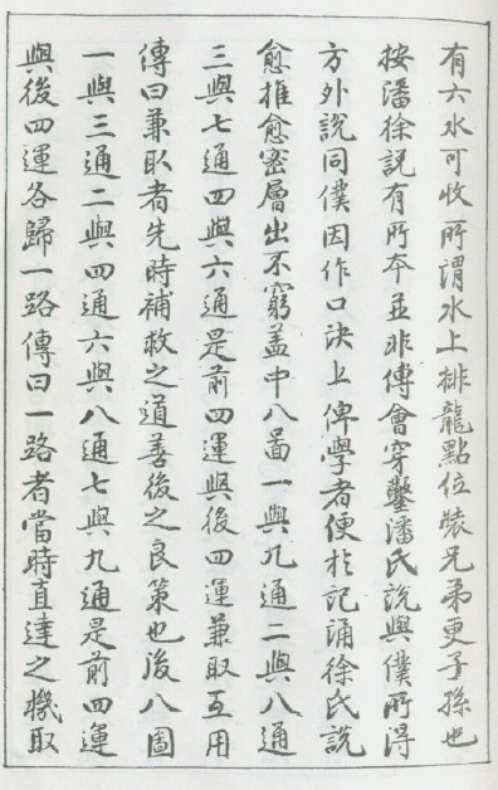 有六水可收所謂水上排龍點位裝兄弟更子孫也
按潘徐説有所本並非傳會穿鑿潘氏説與僕所得
方外説同僕因作口訣上俾學者便於記誦徐氏説
愈推愈密層出不窮蓋中八啚一與九通二與八通
三與七通四與六通是前四運與後四運兼取互用
傳曰兼取者先時補救之道善後之良策也後八圖
一與三通二與四通六與八通七與九通是前四運
與後四運各歸一路傳曰一路者當時直達之機取